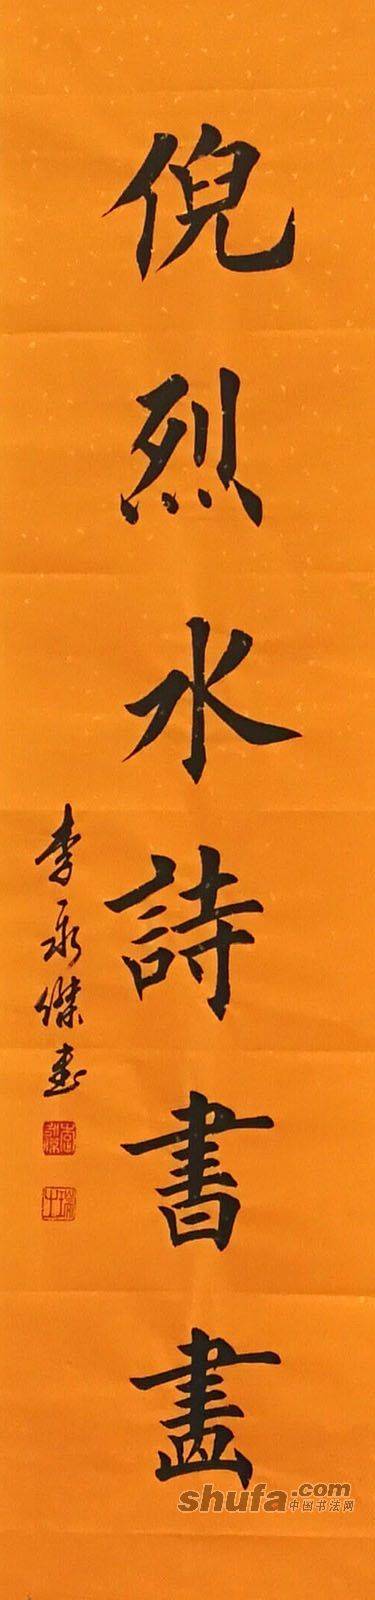 倪烈水詩書畫
李永傑書
shufa.com
中国书法网